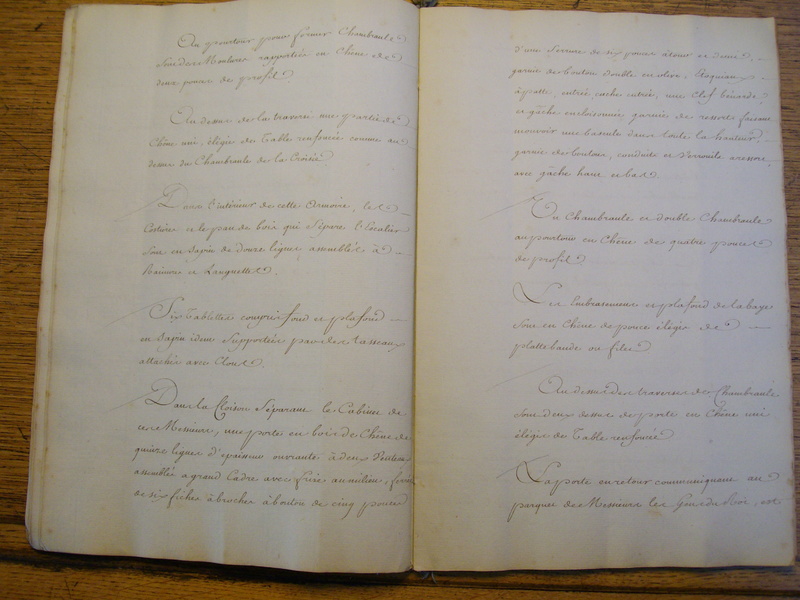 Au pourtour pour former Chambranle
sont des Moulures rapportées en Chêne de
deux pouces de profil.
Au dessus de la traverse une partie de
Chêne uni, élégie de Table renfoncée comme au
dessus du Chambranle de la Croisée
Dans l'intérieur de cette Armoire, les
Costières et le pan de bois qui Sépare l'Escalier
sont en Sapin de douze lignes assemblés à
Rainures et Languettes.
Six Tablettes compris fond et plafond
en Sapin idem Supportées par des tasseaux
attachés avec Clous.
Dans la Cloison Séparant le Cabinet de
ces Messieurs, une porte en bois de Chêne de
quinze lignes d'épaisseur ouvrante à deux Venteaux
assemblée a grand Cadre avec frise au milieu, ferrée
de six fiches à broches à boutons de cinq pouces
d'une Serrure de six pouces à tour et demi,
garnie de bouton double en olive,
à patte, entrée, cache entrée, une Clef bénarde
et gâche encloisonnée garnies de ressorts faisant
mouvoir une bascule dans toute la hauteur
garnie de boutons, conduits et Verrouils a ressort
avec gâche haut et bas.
Un Chambranle et double Chambranle
au pourtour en Chêne de quatre pouces
de profil.
Les Embrasements et plafond de la baye
sont en Chêne de pouce élégis de
plattebande ou filet
Au dessus des traverses de Chambranle
sont deux dessus de porte en Chêne uni
élégis de Table renfoncée
La porte en retour communiquant au
parquet de Messieurs les Gens du Roi, est